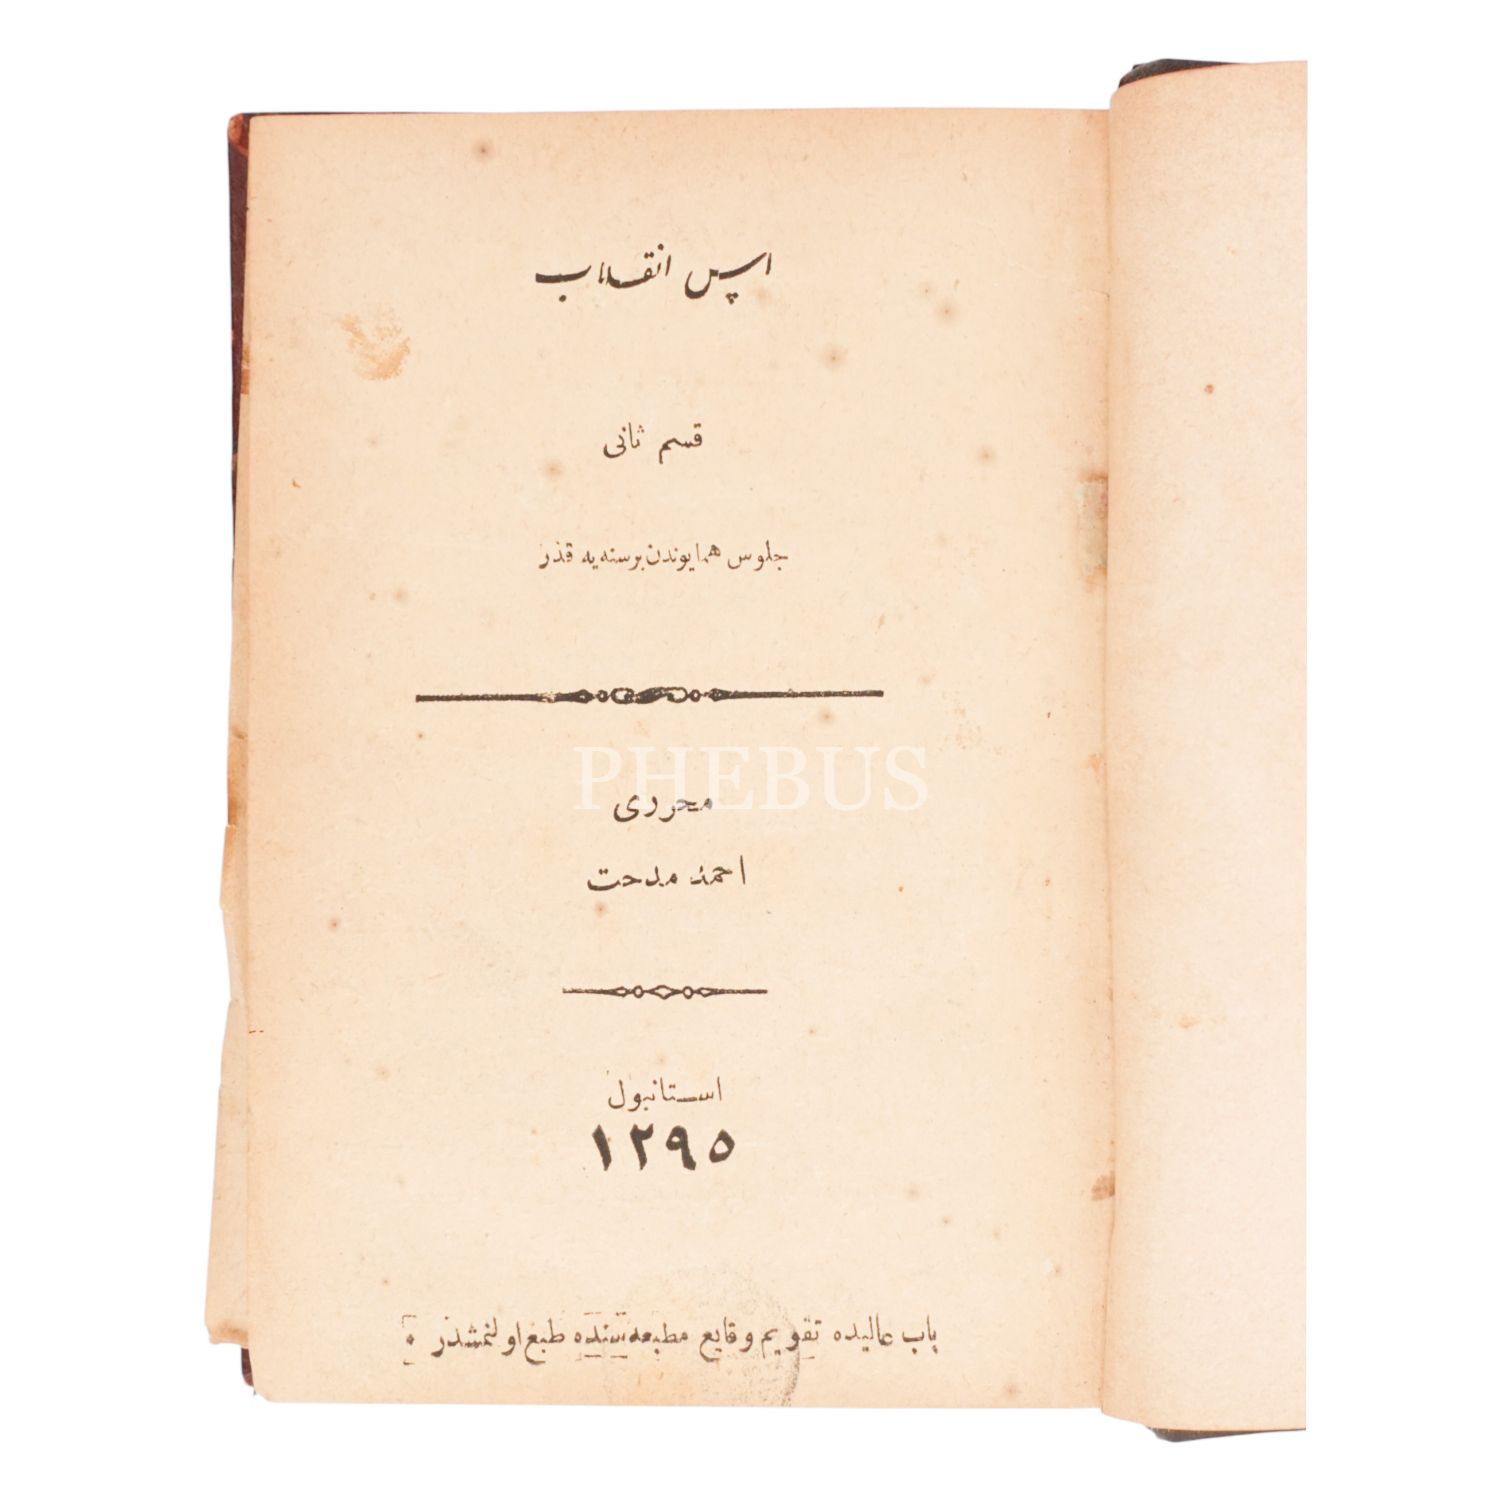 اس انقلاب
قسم ثانی
جلوس همایوندن برسنه یه قدر
PHEBUS
محرری
احمد مدحت
استانبول
١٢٩٥
باب عالیده تقویم وقایع مطبعه سنده طبع اولنمشدر